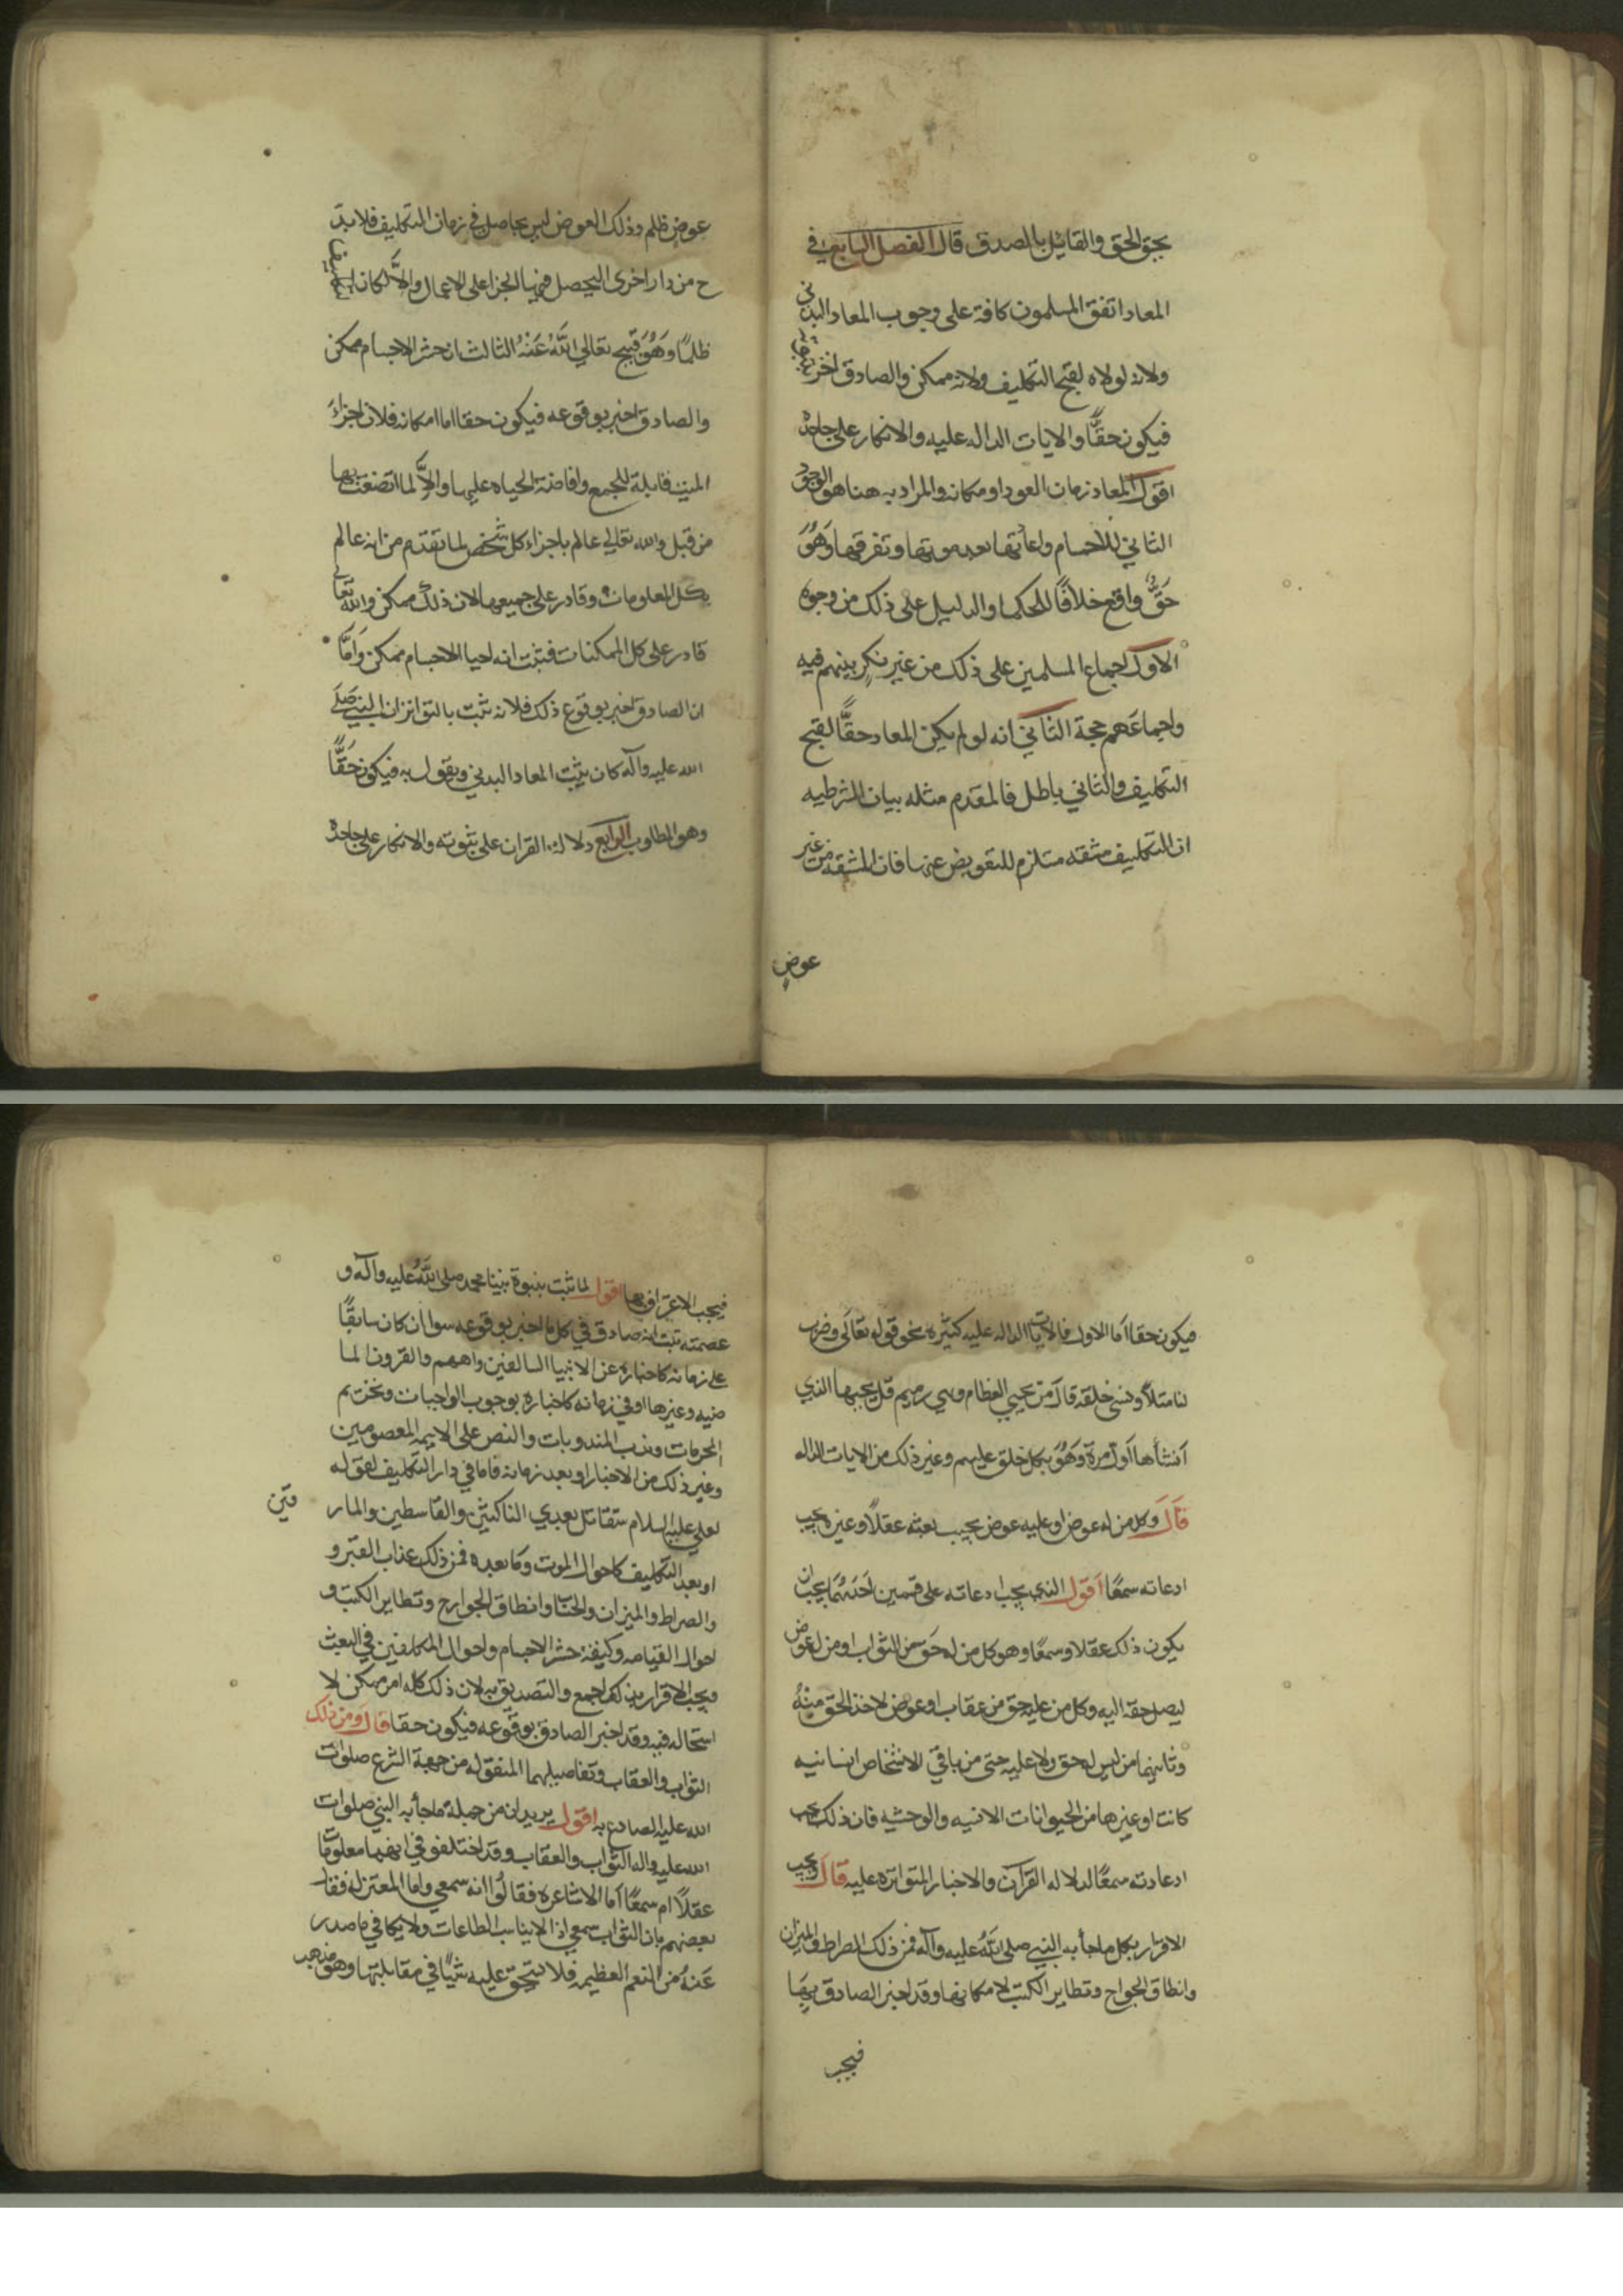 بحق الحق والقائل بالصدق قال الفصل السابع في
المعاد اتفق المسلمون كافة على وجوب المعاد البدني
ولانه لولاه لقبح التكليف ولانه ممكن والصادق اخبر بثبوته
فيكون حقًّا والايات الداله عليه والانكار على جاحده
اقول المعاد زمان العود او مكانه والمراد به هنا هو الوجود
الثاني للاجسام واعادتها بعد موتها وتفرقها وَهُوَ
حَقٌّ واقع خلافًا للحكما والدليل على ذلك من وجوه
الاول اجماع المسلمين على ذلك من غير نكير بينهم فيه
واجماعَهم حجة الثاني انه لو لم يكن المعاد حقًّا لقبح
التكليف والتاني باطل فالمقدم مثله بيان الشرطيه
ان التكليف مشقه مستلزم للتعويض عنها فان المشقه من غير
عوضٍ
عوضٍ ظلم وذلك العوض ليس بحاصل في زمان التكليف فلا بدّ
ح من دار اخرى اليحصل فيها الجزا على الاعمال والَّا لكان التكليف
ظلمًا وَهُوَ قبيح تعالي اللَّهُ عَنْهُ الثالث ان حشر الاجسام ممكن
والصادق اخبر بوقوعه فيكون حقا اما امكانه فلان اجزاءَ
الميت قابلة للجمع وافاضة الحياه عليها والَّا لما اتصفت بها
من قبل والله تعالي عالم باجزاء كل شخص لما تقدم من انه عالم
بكل المعلومات وقادر على جميعها لان ذلك ممكن والله تعالى
قادر على كل الممكنات فثبت انه احيا الاجسام ممكن وَامَّا
ان الصادق اخبر بوقوع ذلك فلانه ثبت بالتواتر ان النبي صَلى
الله عليه وآله كان يثبت المعاد البدني ويقول به فيكون حَقًّا
وهو المطلوب الرابع دلالة القران على ثبوته والانكار على جاحده
فيكون حقا اما الاول فالايات الداله عليه كثيره نحو قوله تعالَى وضرب
لنا مثلًا ونسى خلقه قال من يحيي العظام وهي رميم قل يحييها الذي
أنشأها اَول مرة وَهُوَ بكل خلق عليهم وغير ذلك من الايات الداله
قَالَ وكل من له عوض او عليه عوض يجب بعثه عقلًا وغيره يجب
ادعاته سمعًا اَقول الذي يجب ادعاته على قسمين اَحَدُهُمَا يجب ان
يكون ذلك عقلا وسمعًا وهو كل من له حَق من الثواب او من له عوض
ليصل حقه اليه وكل من عليه حق من عقاب او عوض لاخذ الحق مِنْهُ
وثانيهما من ليس له حق ولا عليه حتى من باقي الاشخاص انسانيه
كانت او غيرها من الحيوانات الانسيه والوحشيه فان ذلك يجب
ادعادته سمعًا لدلاله القرآن والاخبار المتواتره عليه قال ويجب
الاقرار بكل ما جأ به النبي صلى اللَّهُ عليه وآله فمن ذلك الصراط والميزان
وانطاق الجوارح وتطاير الكتب لامكانها وقد اخبر الصادق بِهَا
فيجب
فيجب الاعتراف بها اقول لما ثبت بنبوة نبينا محمد صلى اللَّهُ عليه وآله و
عصمته ثبت انه صادق في كل ما اخبر بوقوعه سوا ان كان سابقًا
على زمانه كاخباره عن الانبيا السالفين واممهم والقرون الما
ضيه وغيرها او في زمانه كاخباره بوجوب الواجبات وتحريم
المحرمات وندب المندوبات والنص على الايمه المعصومين
وغير ذلك من الاخبار او بعد زمانه فاما في دار التكليف لقوله
لعلي عليه السلام ستقاتل بعدي الناكثين والقاسطين والمار
قين
او بعد التكليف كاحوال الموت وما بعده فمن ذلك عذاب القبر و
والصراط والميزان والحساب وانطاق الجوارح وتطاير الكتب و
احوال القيامه وكيفية حشر الاجسام واحوال المكلفين في البعث
ويجب الاقرار بذلك اجمع والتصديق به لان ذلك كله امر ممكن لا
استحاله فيه وقد اخبر الصادق بوقوعه فيكون حقا قال ومن ذلك
الثواب والعقاب وتفاصيلهما المنقوله من جهة الشرع صلوات
الله عليه الصادع به اقول يريد انه من جملة ما جأ به النبي صلوات
الله عليه واله الثواب والعقاب وقد اختلفو في انهما معلومات
عقلًا ام سمعًا اما الاشاعره فقالُوا انه سمعي واما المعتزله فقال
بعضهم بان الثواب سمعي اذ لا يناسب الطاعات ولا يكافي ما صدر
عَنهُ من النعم العظيمه فلا يستحق عليه شيًا في مقابلتها وهو مذهب